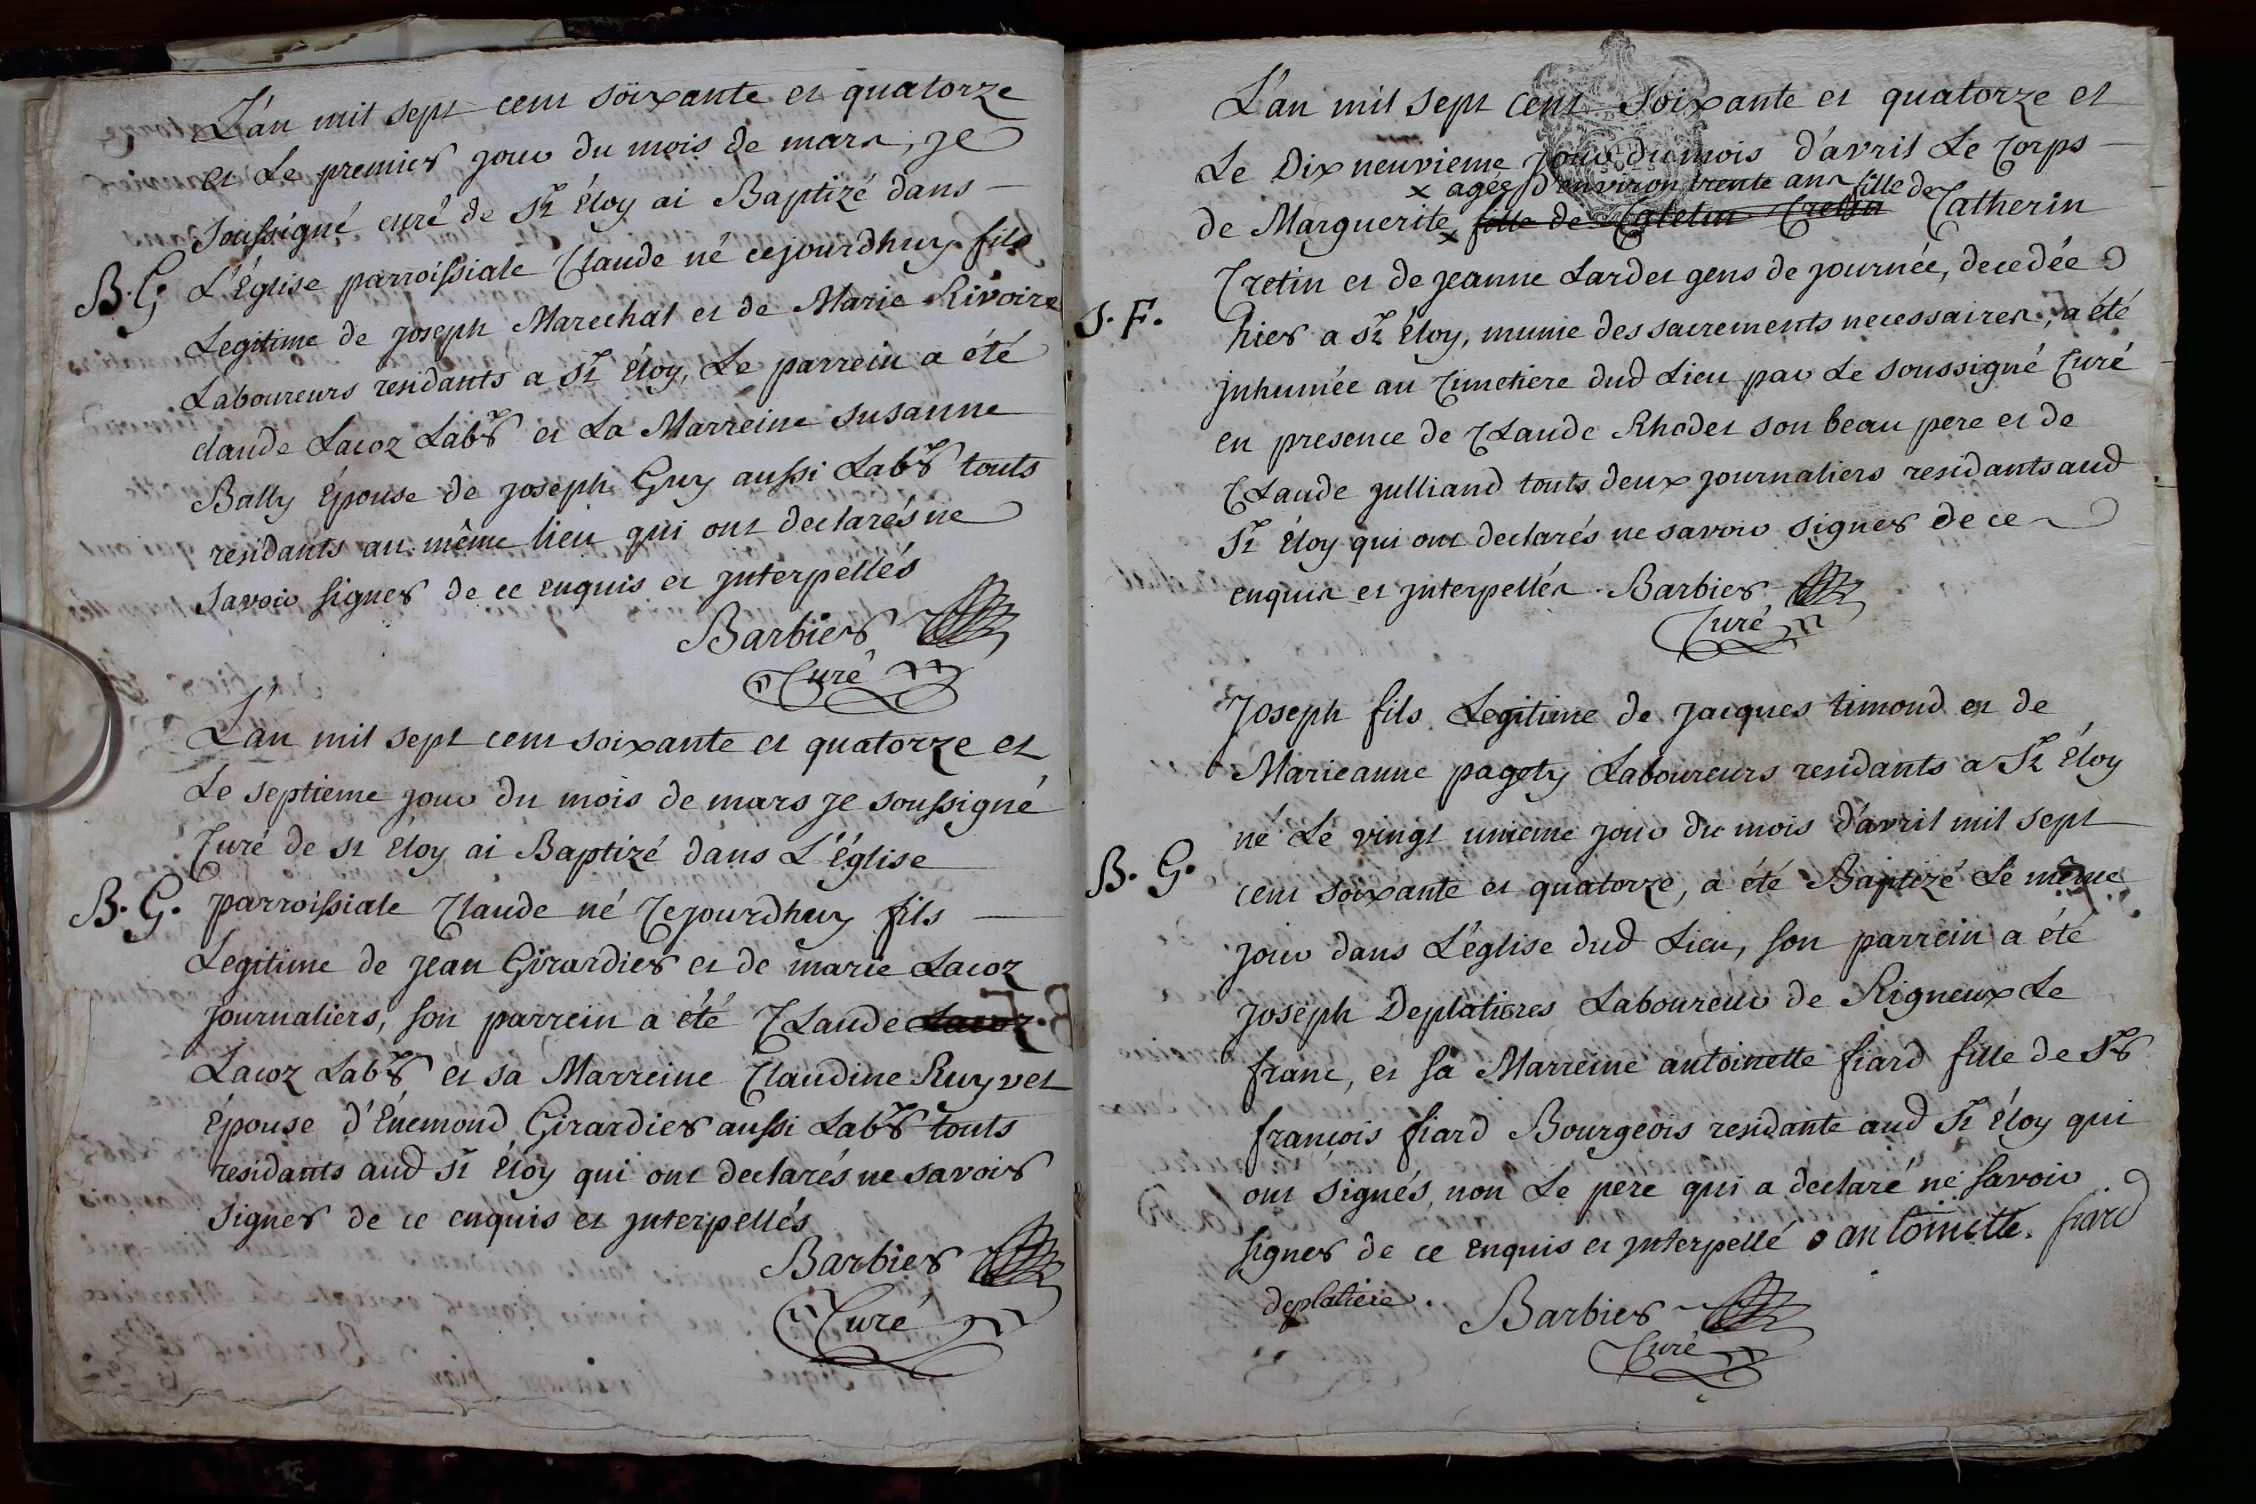 L'an mil sept cent soixante et quatorze
et Le premier jour du mois de mars, je
soussigné curé de St Éloy ai Baptizé dans
B. G.
L'Église parroissiale Claude né cejourdhuy fils
Legitime de joseph Marechal et de Marie Rivoire
Laboureurs residants a St Éloy, Le parrein a été
claude Lacoz Labr et La Marreine susanne
Bally Épouse de joseph Guy aussi Labr touts
residants au même lieu qui ont declarés ne
savoir signer de ce enquis et jnterpellés
Barbier
Curé
L'an mil sept cent soixante et quatorze et
Le septieme jour du mois de mars je soussigné
Curé de st Éloy ai Baptizé dans L'Église
B. G.
parroissiale Claude né Cejourdhuy fils
Legitime de jean Girardier et de marie Lacoz
journaliers, son parrein a été Claude Lacoz
Lacoz Labr et sa Marreine Claudine Ruyvet
Épouse d'Énemond Girardier aussi Labr touts
residants aud St Éloy qui ont declarés ne savoir
signer de ce enquis et jnterpellés
Barbier
Curé
L'an mil sept cent soixante et quatorze et
Le Dix neuvieme jour du mois d'avril Le Corps
x agée d'environ trente ans fille de
de Marguerite x fille de Catelin Cretin Catherin
Cretin et de jeanne Lardet gens de journée, decedée
S. F.
hier a St Éloy, munie des sacrements necessaires, a été
jnhumée au Cimetiere dud Lieu par Le soussigné Curé
en presence de Claude Rhodet son beau pere et de
Claude julliand touts deux journaliers residants aud
St Éloy qui ont declarés ne savoir signer de ce
enquis et jnterpellés. Barbier
Curé
Joseph fils Legitime de jacques timond et de
Marieanne pagety Laboureurs residants a St Éloy
né Le vingt unieme jour du mois d'avril mil sept
B. G.
cent soixante et quatorze, a été Baptizé Le même
jour dans L'église dud Lieu, son parrein a été
joseph Deplatieres Laboureur de Rigneux Le
franc, et sa Marreine antoinette fiard fille de Sr
françois fiard Bourgeois residante aud St Éloy qui
ont signés, non Le pere qui a declaré ne savoir
signer de ce enquis et jnterpellé antoinette fiard
deplatiere. Barbier
Curé